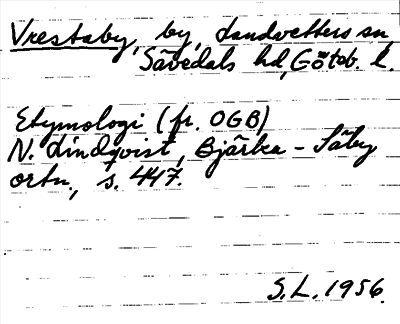 Vrestaby, by, Landvetters sn,
Sävedals hd, Götob. l.
Etymologi (fr. OGB)
N. Lindqvist, Bjärka-Säby
ortn., s. 447.
S.L. 1956.